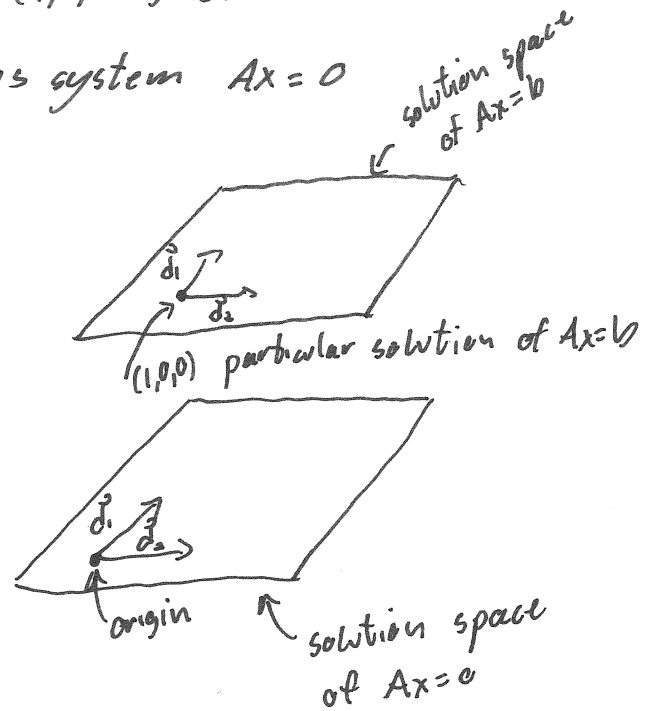 s system Ax = 0
solution space
of Ax=b
d₁
d₂
(1,0,0) particular solution of Ax=b
d₁
d₂
origin
solution space
of Ax=0